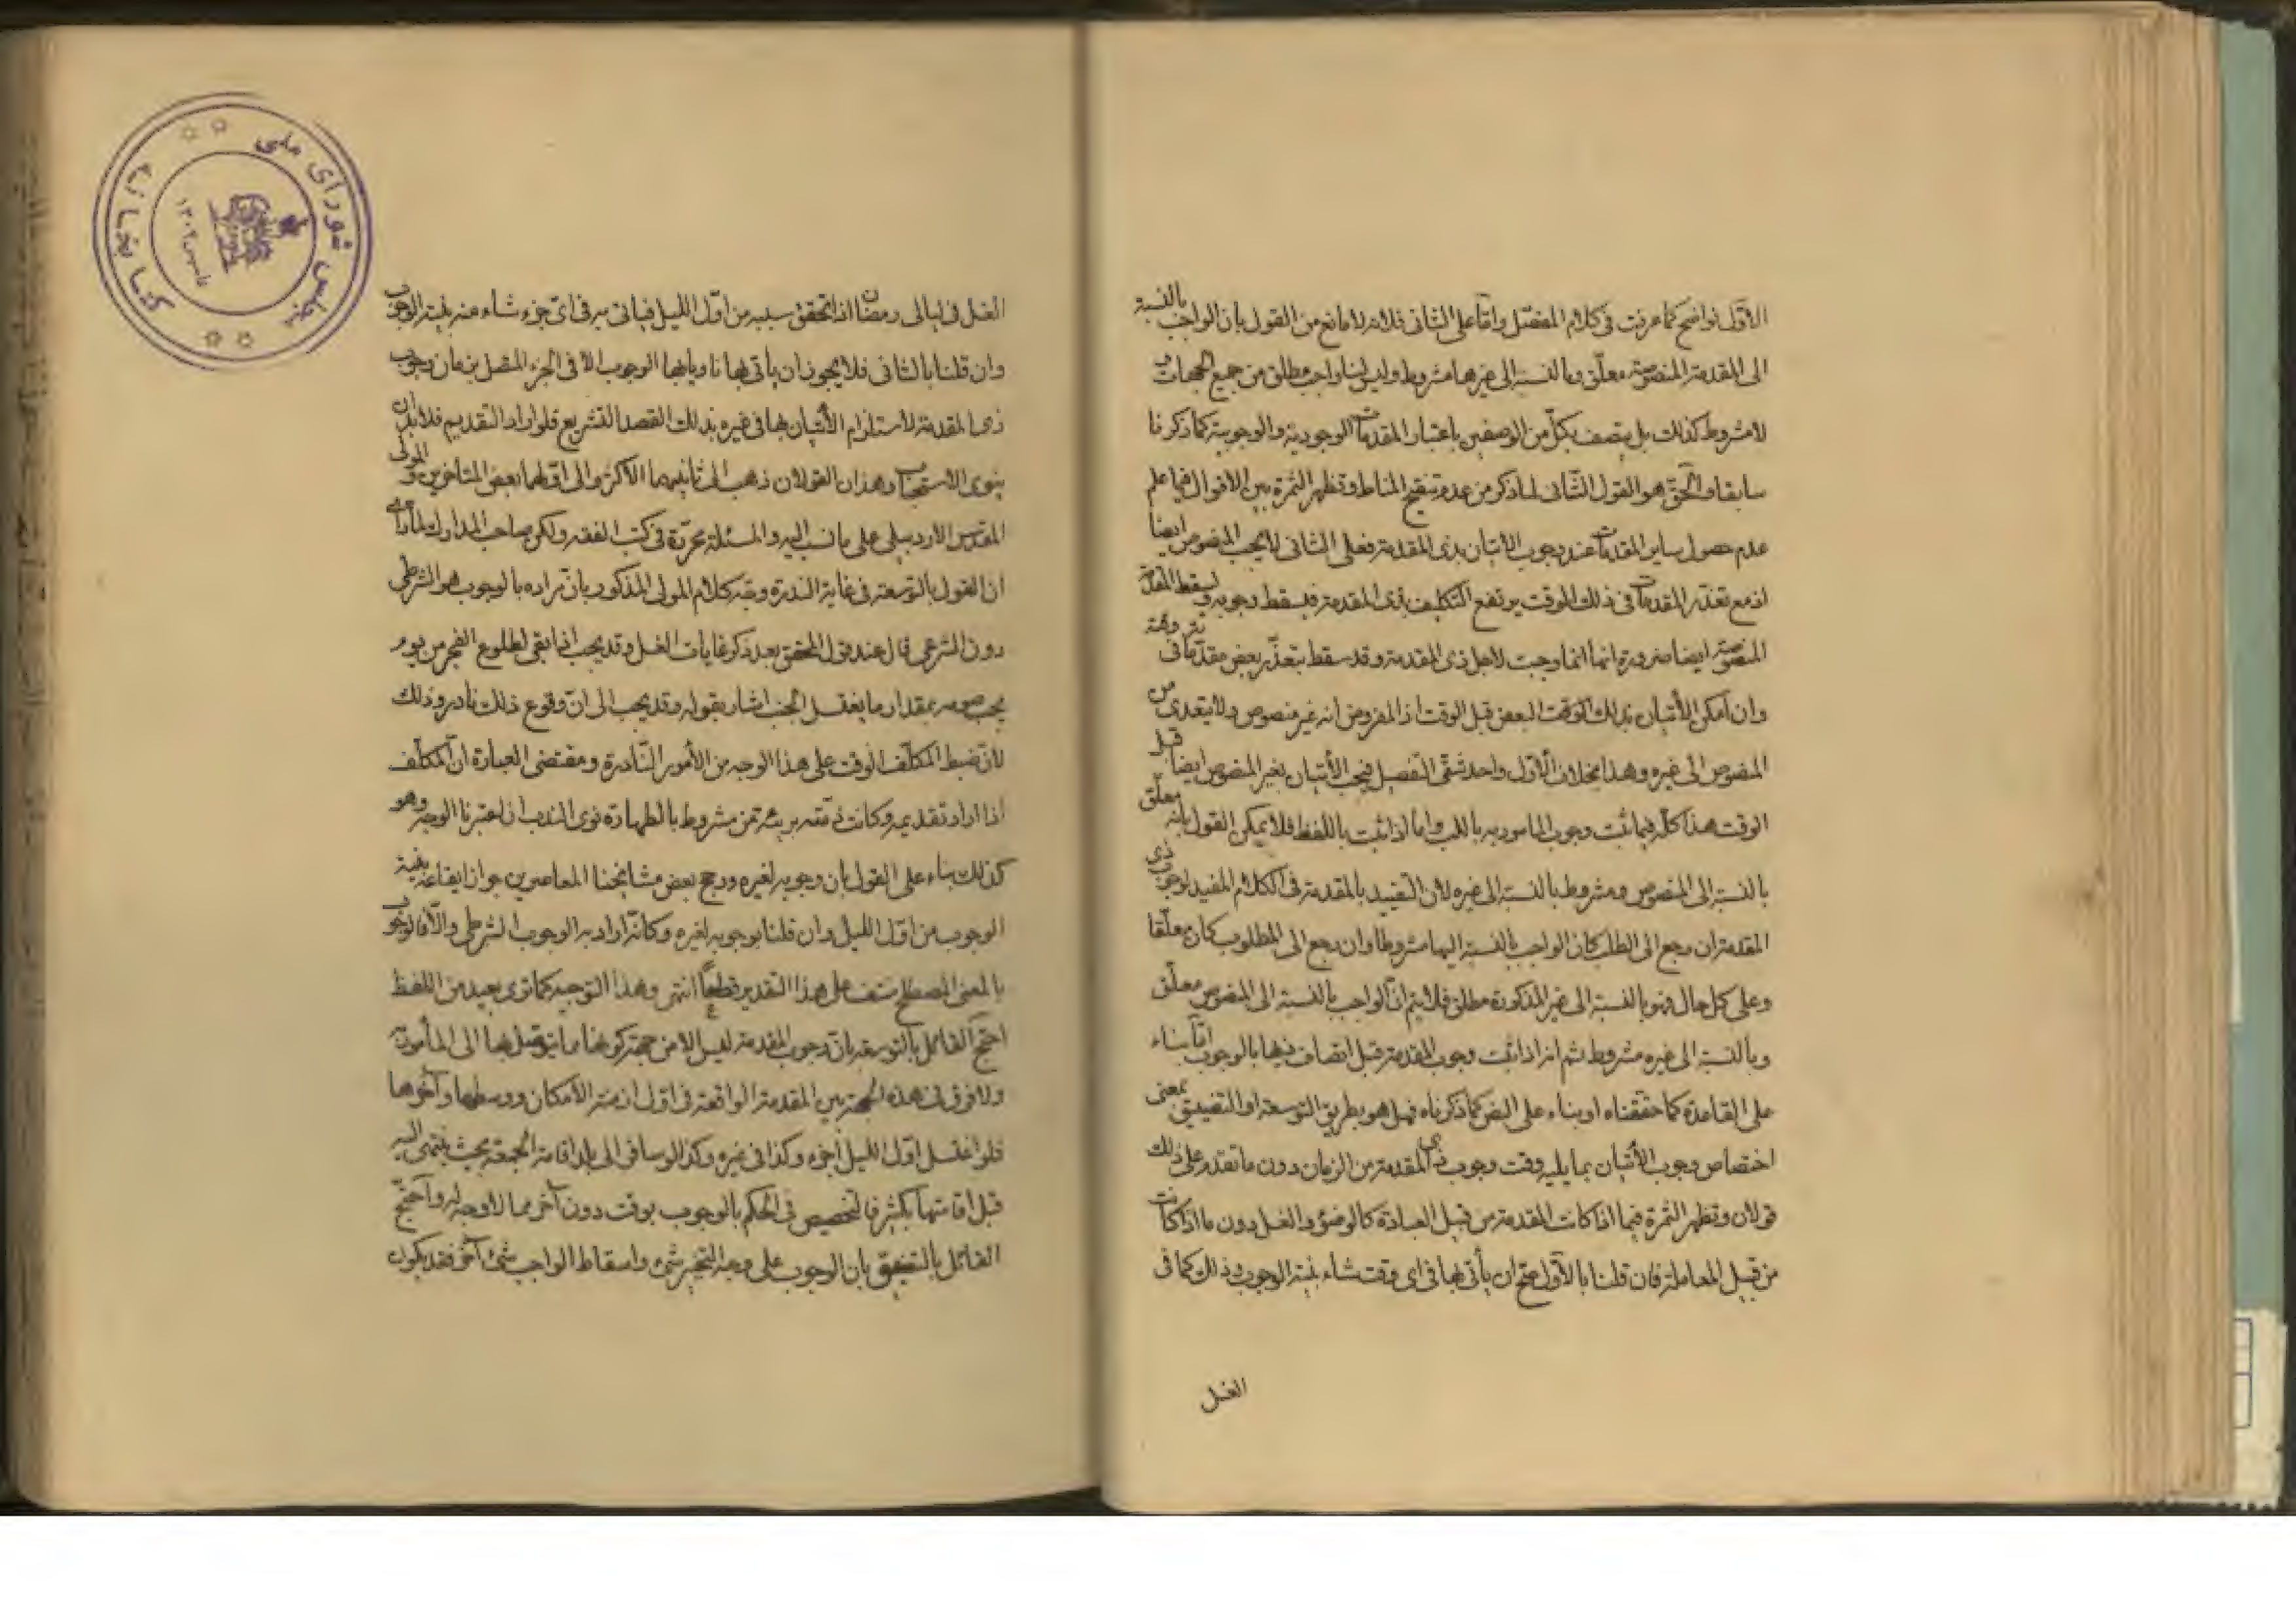 الاوّل فواضح كما عرفت فى كلام المفصّل وامّا على الثانى فلانه لا مانع من القول بان الواجب بالنسبة
الى المقدمة المنصوصة معلّق وبالنسبة الى غيرها مشروط وليس لنا واجب مطلق من جميع الجهات و
لا مشروط كذلك بل يتصف بكلّ من الوصفين باعتبار المقدمات الوجودية والوجوبية كما ذكرنا
سابقا والحقّ هو القول الثّانى لما ذكر من عدم تنقيح المناط وتظهر الثمرة بين الاقوال فيما علم
عدم حصول ساير المقدمات عند وجوب الاتيان بذى المقدمة فعلى الثانى لا يجب المنصوص ايضا
اذ مع تعذّر المقدمات فى ذلك الوقت يرتفع التكليف بذى المقدمة فيسقط وجوبه ويسقط المقدمة
المنصوصة ايضا ضرورة انها انما وجبت لاجل ذى المقدمة وقد سقط بتعذّر بعض مقدّماته فى
وان امكن الأتيان بذلك البعض قبل الوقت اذ المفروض انه غير منصوص ولا يتعدى من
المنصوص الى غيره وهذا بخلاف الأوّل واحد شقّى التفصيل فيجب الأتيان بغير المنصوص ايضا قبل
الوقت هذا كلّه فيما ثبت وجوب المامور به باللب واما اذا ثبت باللفظ فلا يمكن القول بانه معلّق
بالنسبة الى المنصوص ومشروط بالنسبة الى غيره لان التقييد بالمقدمة فى الكلام المفيد لوجوب ذى
المقدمة ان رجع الى الطلب كان الواجب بالنسبة اليها مشروطا وان رجع الى المطلوب كان معلّقا
وعلى كل حال فهو بالنسبة الى غير المذكورة مطلق فلا يتم ان الواجب بالنسبة الى المنصوص معلّق
وبالنسبة الى غيره مشروط ثم انه اذا ثبت وجوب المقدمة قبل اتصاف ذيها بالوجوب امّا بناء
على القاعدة كما حققناه او بناء على النص كما ذكرناه فهل هو بطريق التوسعة او التضييق بمعنى
اختصاص وجوب الأتيان بما يليه وقت وجوب ذى المقدمة من الزمان دون ما تقدم على ذلك
قولان وتظهر الثمرة فيما اذا كانت المقدمة من قبيل العبادة كالوضوء والغسل دون ما اذا كانت
من قبيل المعاملة فان قلنا بالاوّل صحّ ان يأتى بها فى اى وقت شاء بنية الوجوب وذلك كما فى
الغسل
الغسل فى ليالى رمضان اذا تحقق سببه من اوّل الليل فياتى به فى اىّ جزء شاء منه بنية الوجوب
وان قلنا بالثانى فلا يجوز ان يأتى بها ناويا بها الوجوب الا فى الجزء المتصل بزمان وجوب
ذى المقدمة لاستلزام الأتيان بها فى غيره بذلك القصد التشريع فلو اراد التقديم فلا بد ان
ينوى الاستحباب وهذان القولان ذهب الى ثانيهما الاكثر والى اوّلهما بعض المتأخرين والمولى
المقدّس الاردبيلى على ما نسب اليه والمسئلة محرّرة فى كتب الفقه ولكن صاحب المدارك لما رأى
ان القول بالتوسعة فى غاية الندرة وجّه كلام المولى المذكور بان مراده بالوجوب هو الشرطى
دون الشرعى قال عند قول المحقق بعد ذكر غايات الغسل وقد يجب اذا بقى لطلوع الفجر من يوم
يجب صومه بمقدار ما يغتسل الجنب اشار بقوله وقد يجب الى انّ وقوع ذلك نادر وذلك
لان ضبط المكلّف الوقت على هذا الوجه من الأمور النّادرة ومقتضى العبارة انّ المكلّف
اذا اراد تقديمه وكانت ذمّته بريئة من مشروط بالطهارة نوى الندب ان اعتبرنا الوجه وهو
كذلك بناء على القول بان وجوبه لغيره ورجح بعض مشايخنا المعاصرين جواز ايقاعه بنية
الوجوب من اوّل الليل وان قلنا بوجوبه لغيره وكانّه اراد به الوجوب الشرطى والّا فالوجوب
بالمعنى المصطلح منتف على هذا التقدير قطعًا انتهى وهذا التوجيه كما ترى بعيد من اللفظ
احتجّ القائل بالتوسعة بان وجوب المقدمة ليس الا من جهة كونها مما يتوصّل بها الى المأمور به
ولا فرق فى هذه الجهة بين المقدمة الواقعة فى اوّل ازمنة الامكان ووسطها وآخرها
فلو اغتسل اوّل الليل اجزء وكذا فى غيره وكذا لو سافر الى بلد اقامة الجمعة بحيث ينتهى اليه
قبل اقامتها بكثير فالتخصيص فى الحكم بالوجوب بوقت دون آخر مما لا وجه له واحتجّ
القائل بالتضييق بان الوجوب على وجه التخيير شئ واسقاط الواجب شئ آخر فقد يكون
كتابخانه مجلس شوراى ملى